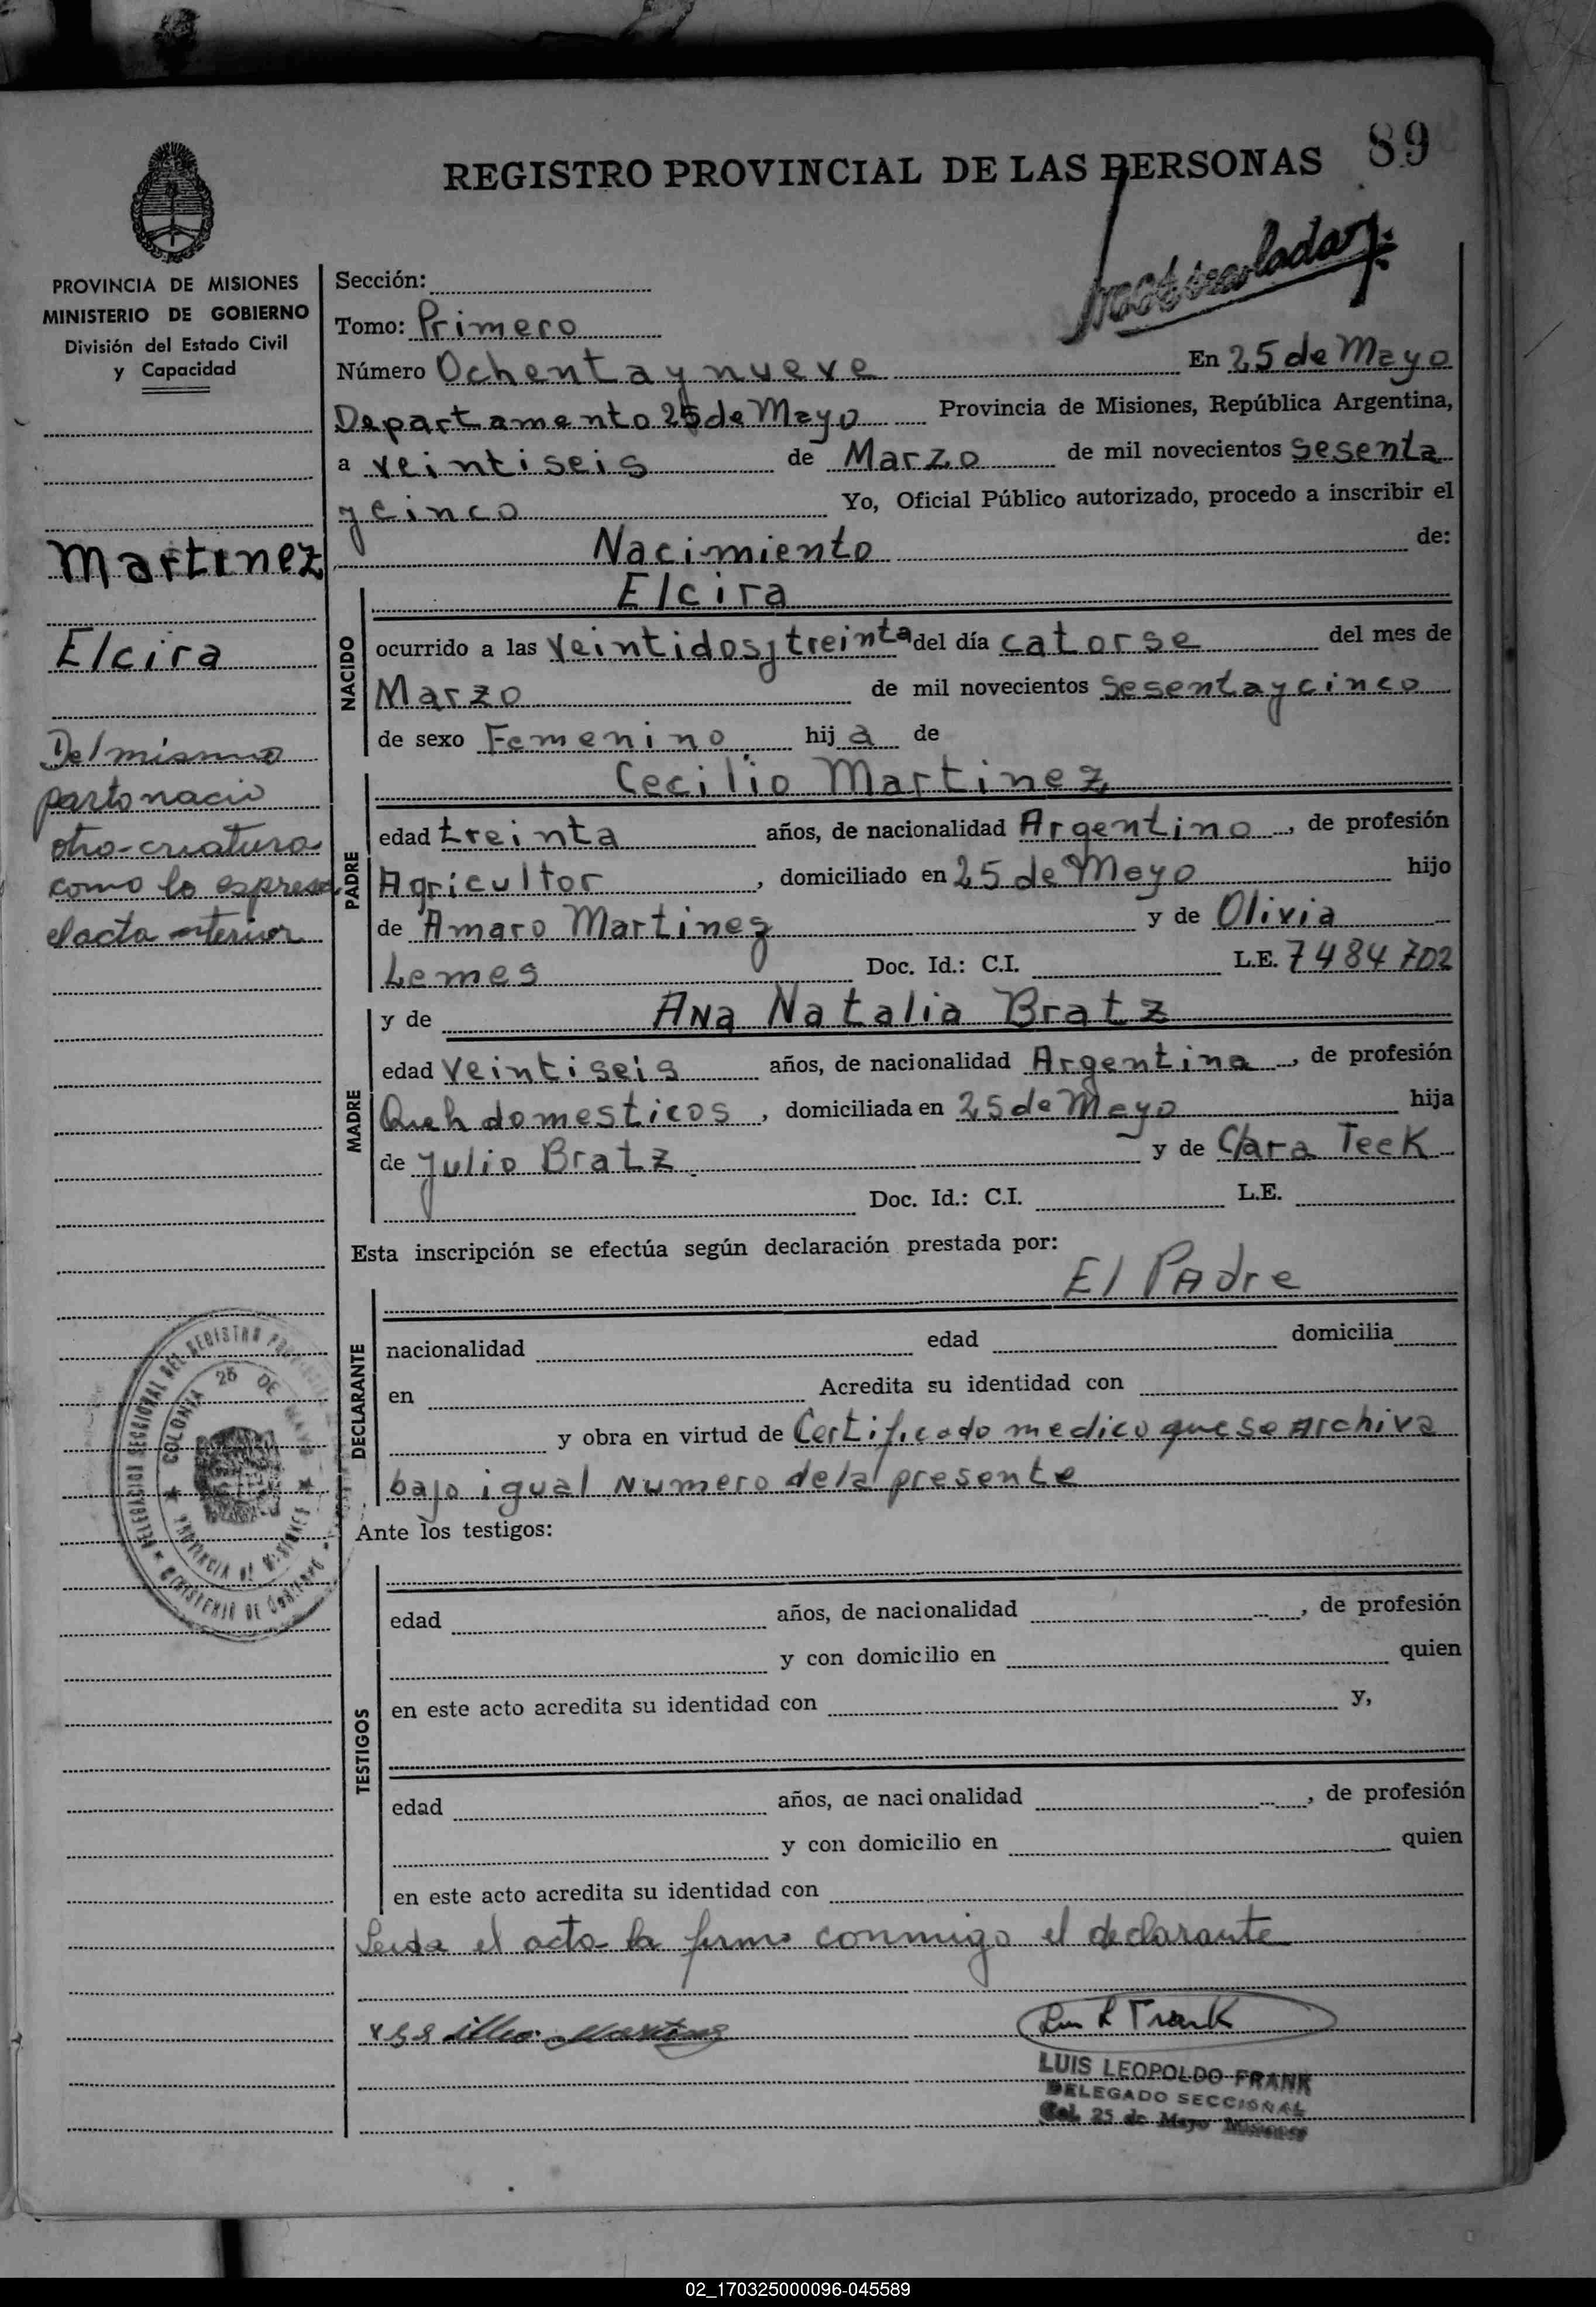 89
REGISTRO PROVINCIAL DE LAS PERSONAS
PROVINCIA DE MISIONES
MINISTERIO DE GOBIERNO
División del Estado Civil
y Capacidad
Martinez
Elcira
Del mismo
parto nacio
otro-criatura
como lo espresa
el acta anterior
Sección:
Tomo: Primero
Número Ochenta y nueve En 25 de Mayo
Departamento 25 de Mayo Provincia de Misiones, República Argentina,
a veintiseis de Marzo de mil novecientos sesenta
y cinco Yo, Oficial Público autorizado, procedo a inscribir el
Nacimiento de:
Elcira
NACIDO
ocurrido a las veintidos y treinta del día catorse del mes de
Marzo de mil novecientos sesenta y cinco
de sexo Femenino hija de
Cecilio Martinez
PADRE
edad treinta años, de nacionalidad Argentino, de profesión
Agricultor, domiciliado en 25 de Mayo hijo
de Amaro Martinez y de Olivia
Lemes Doc. Id.: C.I. L.E. 7484702
y de Ana Natalia Bratz
MADRE
edad veintiseis años, de nacionalidad Argentina, de profesión
Queh domesticos, domiciliada en 25 de Mayo hija
de Julio Bratz y de Clara Teek
Doc. Id.: C.I. L.E.
Esta inscripción se efectúa según declaración prestada por:
El Padre
DECLARANTE
nacionalidad edad domicilia
en Acredita su identidad con
y obra en virtud de Certificado medico que se Archiva
bajo igual Numero de la presente
Ante los testigos:
TESTIGOS
edad años, de nacionalidad , de profesión
y con domicilio en quien
en este acto acredita su identidad con y,
edad años, de nacionalidad , de profesión
y con domicilio en quien
en este acto acredita su identidad con
Leida el acta la firma conmigo el declarante
Martinez
L Frank
LUIS LEOPOLDO FRANK
DELEGADO SECCIONAL
Col. 25 de Mayo Misiones
DELEGACION SECCIONAL DEL REGISTRO
MINISTERIO DE GOBIERNO
COLONIA 25 DE MAYO
PROVINCIA DE MISIONES
02_170325000096-045589